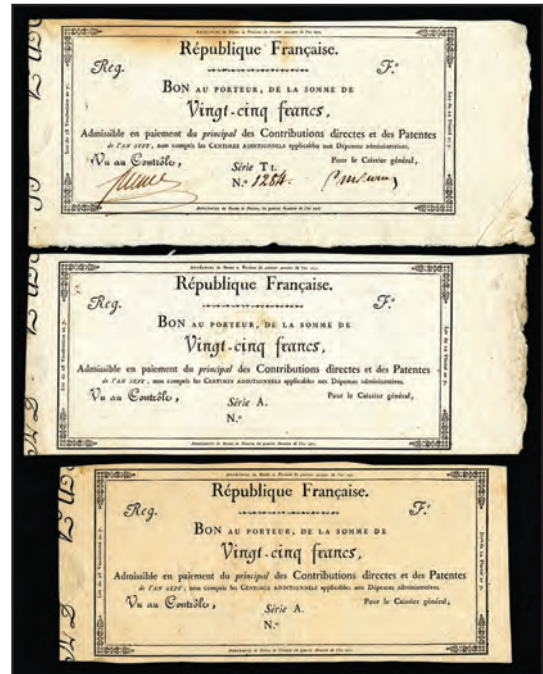 République Française.
Reg. F.º
BON AU PORTEUR, DE LA SOMME DE
Vingt-cinq francs,
Admissible en paiement du principal des Contributions directes et des Patentes
de l'AN SEPT, non compris les CENTIMES ADDITIONNELS applicables aux Dépenses administratives.
Vu au Contrôle, Pour le Caissier général,
Série Tt.
N.º 1284.
République Française.
Reg. F.º
BON AU PORTEUR, DE LA SOMME DE
Vingt-cinq francs,
Admissible en paiement du principal des Contributions directes et des Patentes
de l'AN SEPT, non compris les CENTIMES ADDITIONNELS applicables aux Dépenses administratives.
Vu au Contrôle, Pour le Caissier général,
Série A.
N.º
République Française.
Reg. F.º
BON AU PORTEUR, DE LA SOMME DE
Vingt-cinq francs,
Admissible en paiement du principal des Contributions directes et des Patentes
de l'AN SEPT, non compris les CENTIMES ADDITIONNELS applicables aux Dépenses administratives.
Vu au Contrôle, Pour le Caissier général,
Série A.
N.º